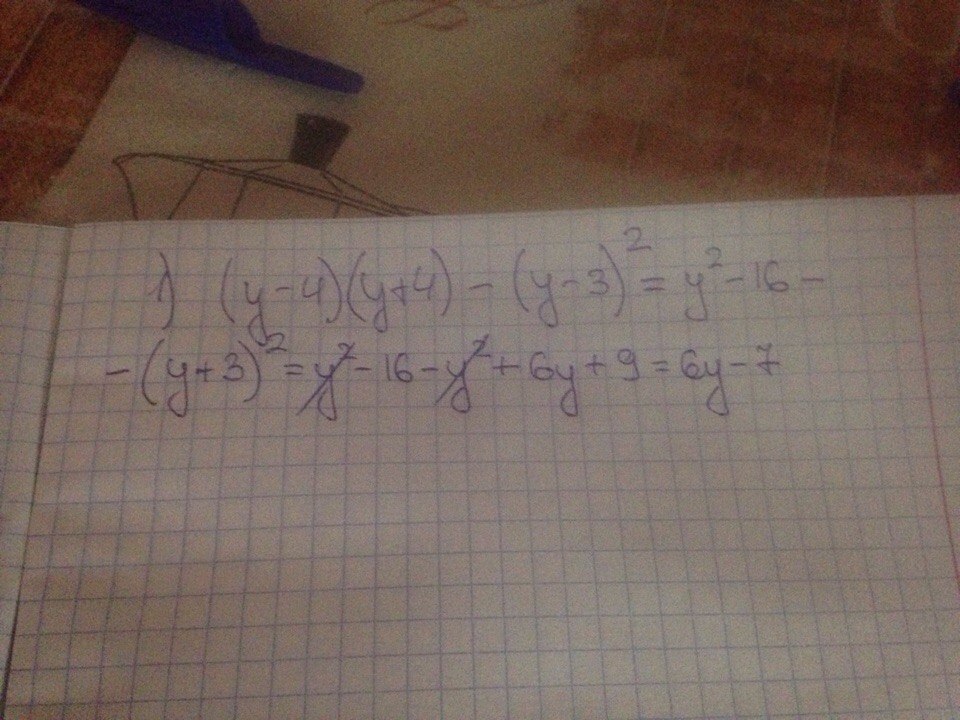 1) (y-4)(y+4) - (y-3)² = y² - 16 -
- (y+3)² = y² - 16 - y² + 6y + 9 = 6y - 7